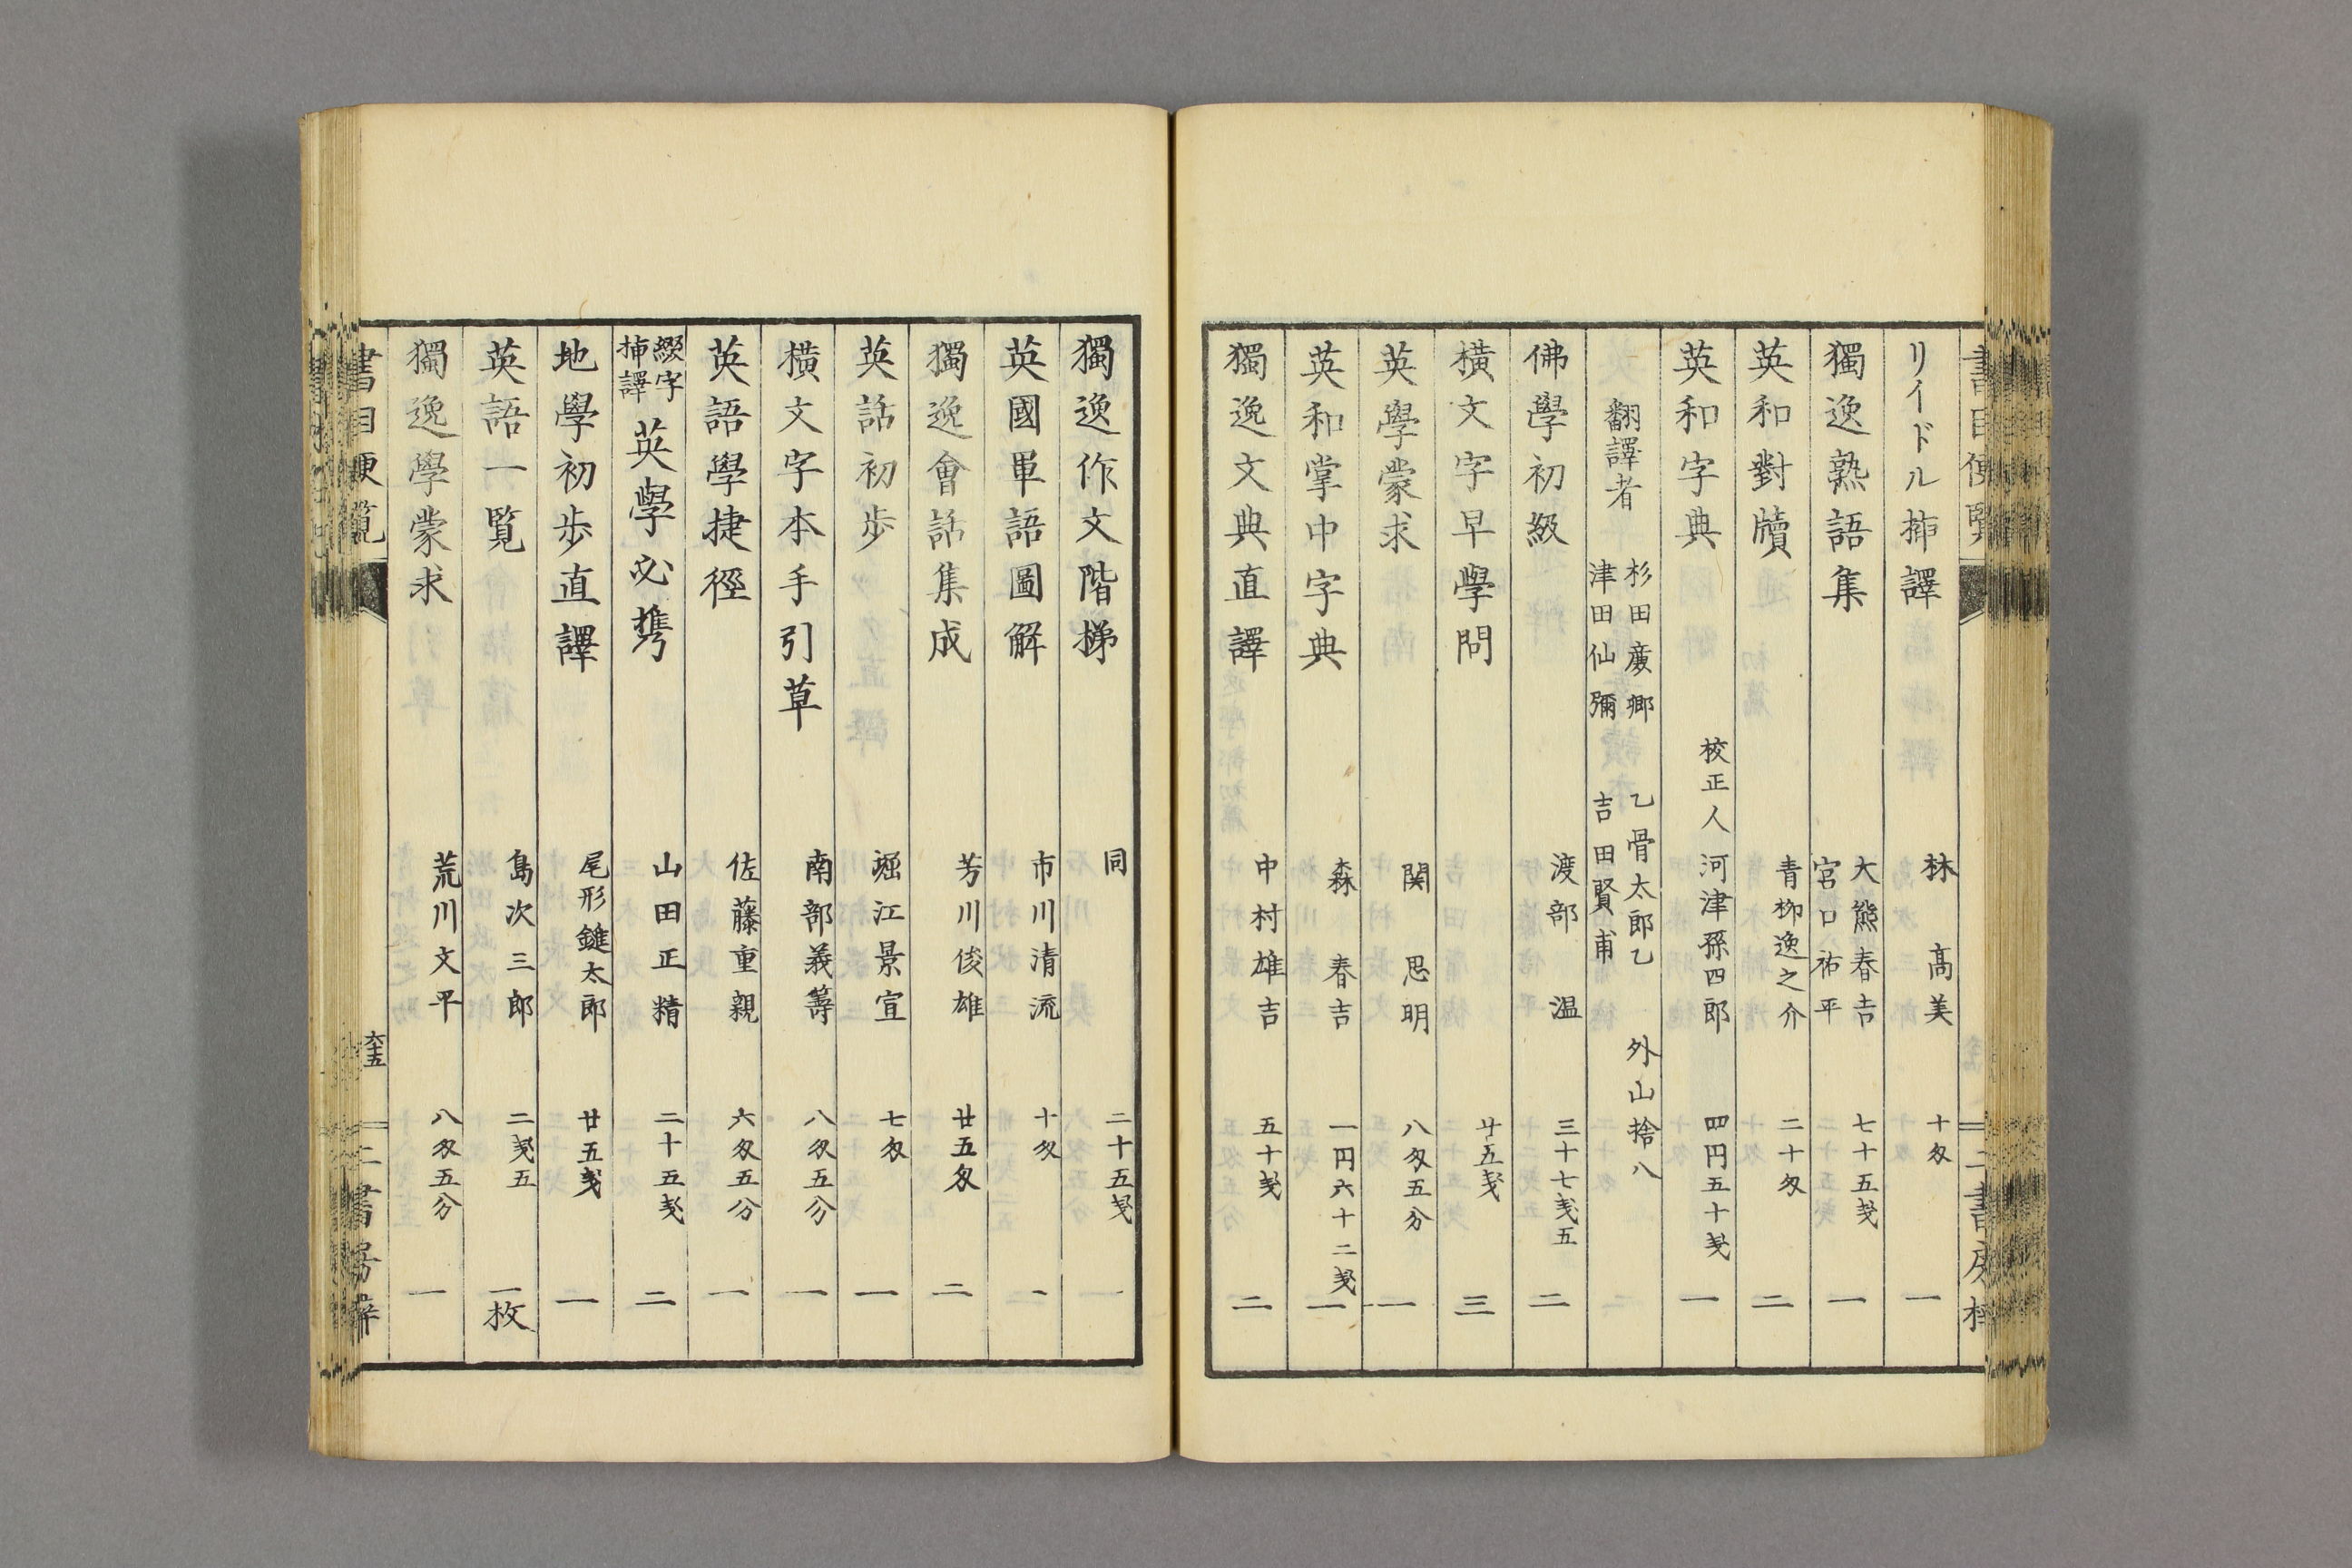 リイドル挿譯 林高美 十匁 一
獨逸熟語集 大熊春吉 宮口祐平 七十五戔 一
英和對牘 青栁逸之介 二十匁 二
英和字典 校正人 河津孫四郎 四円五十戔 一
翻譯者 杉田廣郷 津田仙彌 乙骨太郎乙 吉田賢甫 外山捨八
佛學初級 渡部温 三十七戔五 二
横文字早學問 廿五戔 三
英學蒙求 関思明 八匁五分 一
英和掌中字典 森春吉 一円六十二戔 一
獨逸文典直譯 中村雄吉 五十戔 二
獨逸作文階梯 同 二十五戔 一
英國單語圖解 市川清流 十匁 一
獨逸會話集成 芳川俊雄 廿五匁 二
英話初歩 堀江景宣 七匁 一
横文字本手引草 南部義籌 八匁五分 一
英語學捷徑 佐藤重親 六匁五分 一
綴字挿譯 英學必携 山田正精 二十五戔 二
地學初歩直譯 尾形鏙太郎 廿五戔 一
英語一覧 島次三郎 二戔五 一枚
獨逸學蒙求 荒川文平 八匁五分 一
書目便覧 六十五 二書房梓